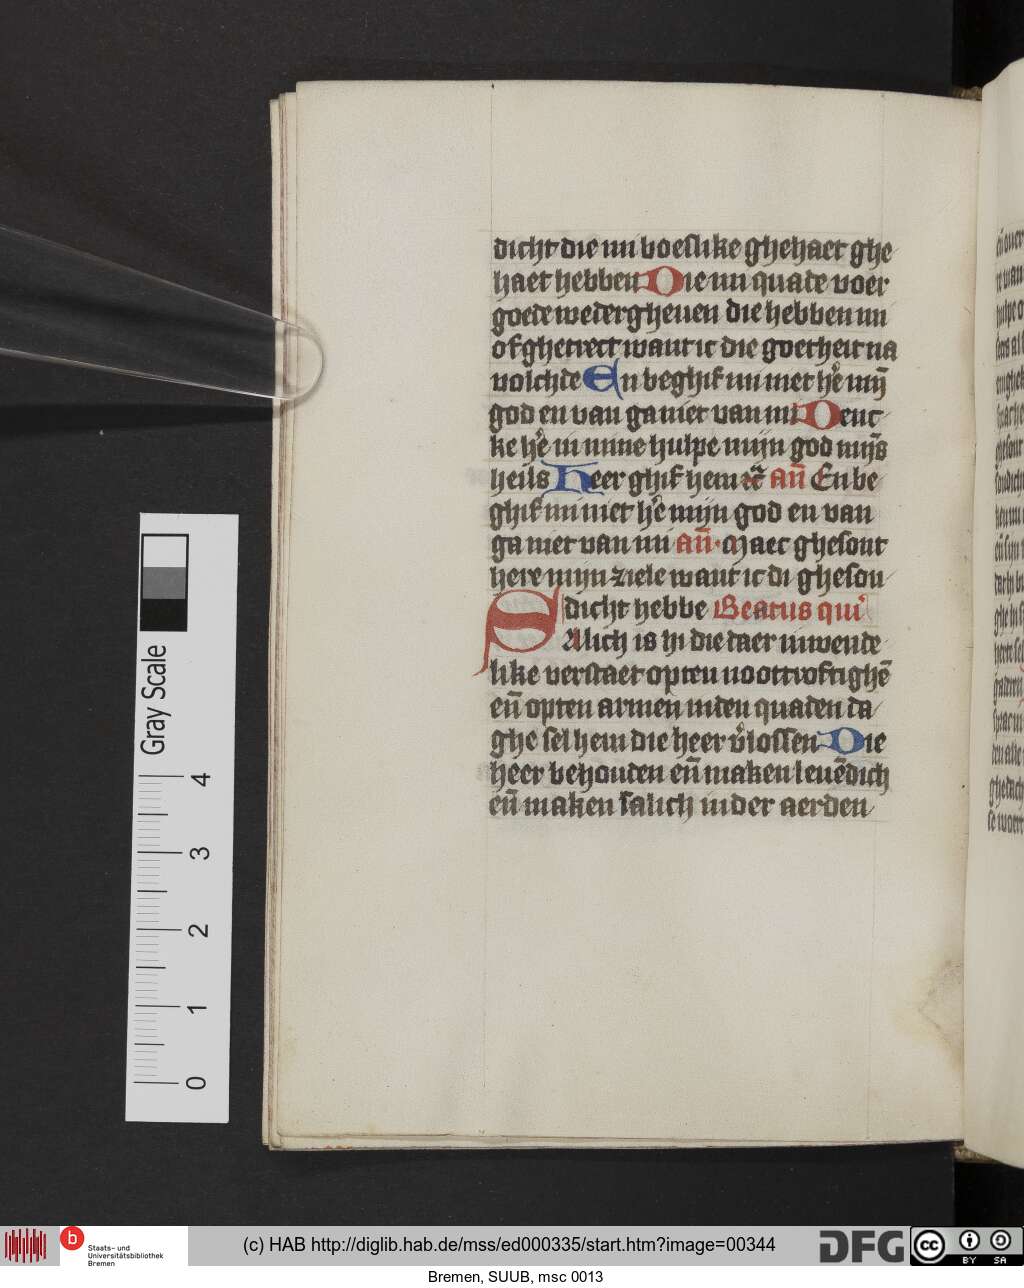 dicht die mi boeslike ghehaet ghe
haet hebben Die mi quade voer
goede wedergheuen die hebben mi
ofghetrect want ic die goetheit na
volchde En beghif mi niet he mij
god en van ga niet van mi Denc
ke he in mine hulpe mijn god mijs
heils Heer ghif hem añ En be
ghif mi niet he mijn god en van
ga niet van mi añ Maec ghesont
here mijn ziele want ic di ghesou
dicht hebbe Beatus qui
Salich is hi die daer inwende
like verstaet opten noottroftighē
eñ opten armen inden quaden da
ghe sel hem die heer vlossen Die
heer behouden eñ maken leuēdich
eñ maken salich inder aerden
Gray Scale
4
3
2
1
0
b
Staats- und
Universitätsbibliothek
Bremen
(c) HAB http://diglib.hab.de/mss/ed000335/start.htm?image=00344
DFG
cc
BY SA
Bremen, SUUB, msc 0013